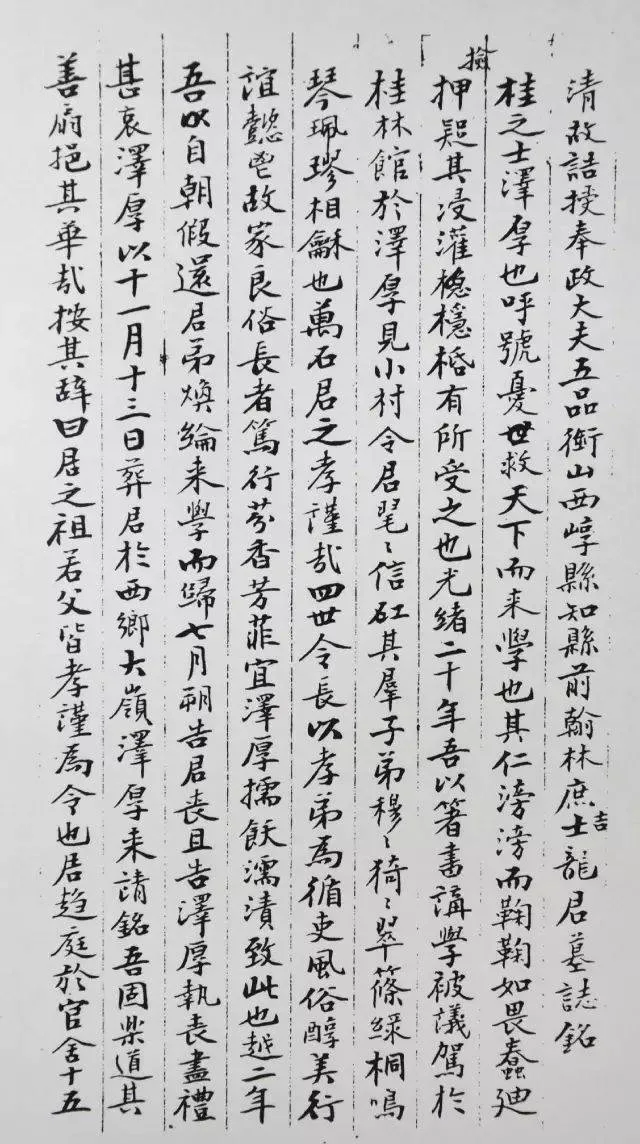 清故誥授奉政大夫五品銜山西崞縣知縣前翰林庶吉士龍君墓誌銘
桂之士澤厚也呼號憂世救天下而来學也其仁滂滂而鞠鞠如畏蠡廸
押檢疑其浸灌檼栝有所受之也光緒二十年吾以箸書講學被議駕於
桂林館於澤厚見小村令君鼊〻信矼其羣子弟穆〻猗〻翠篠綠桐鳴
琴珮璆相龢也萬石君之孝謹哉四世令長以孝弟為循吏風俗醇美行
誼懿鬯故家良俗長者篤行芬香芳菲宜澤厚擩飫濡漬致此也越二年
吾以自朝假還君弟煥綸来學而歸七月朔告君喪且告澤厚執喪盡禮
甚哀澤厚以十一月十三日葬君於西鄉大嶺澤厚来請銘吾固樂道其
善扇挹其華哉按其辭曰君之祖若父皆孝謹為令也君趨庭於官舍十五